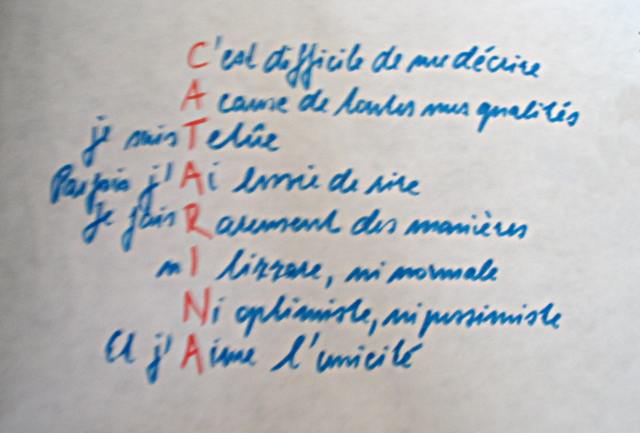 C'est difficile de me décrire
A cause de toutes mes qualités
je suis Tetûe
Parfois j'Ai envie de rire
Je fais Rarement des manières
nI bizzare, ni normale
Ni optimiste, ni pessimiste
Et j'Aime l'unicité